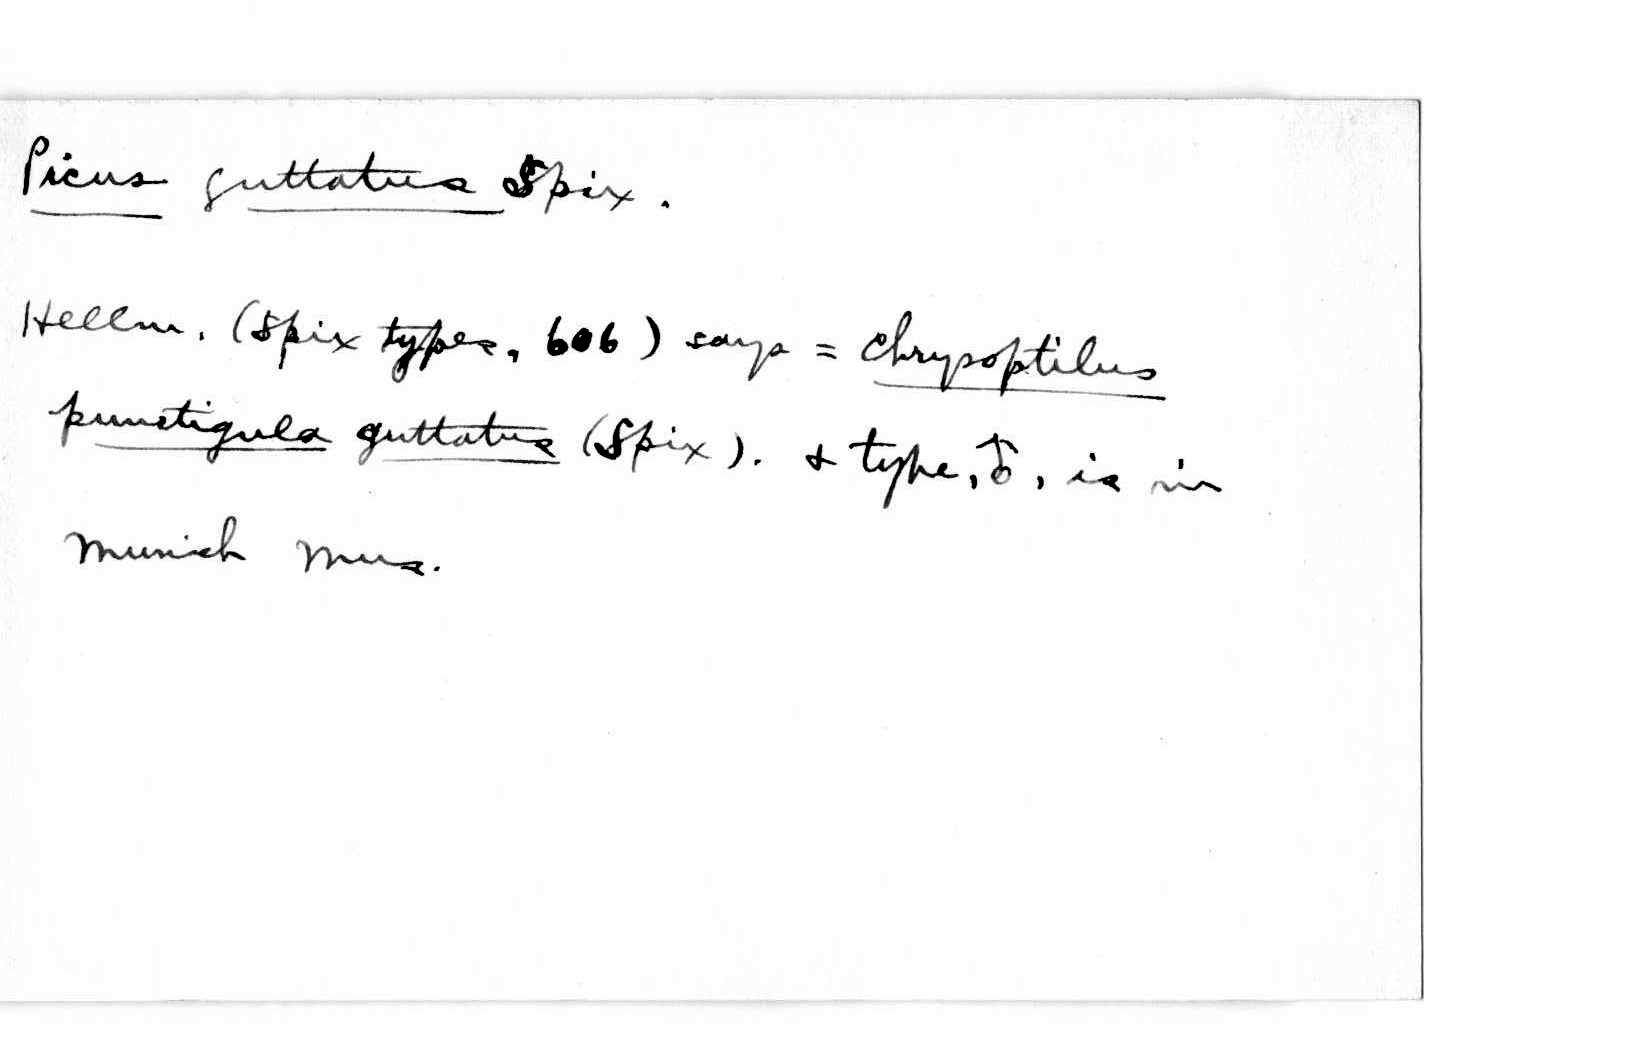 Picus guttatus Spix.
Hellm. (Spix types, 606) says = Chrysoptilus
punctigula guttatus (Spix). & type, ♂, is in
Munich Mus.